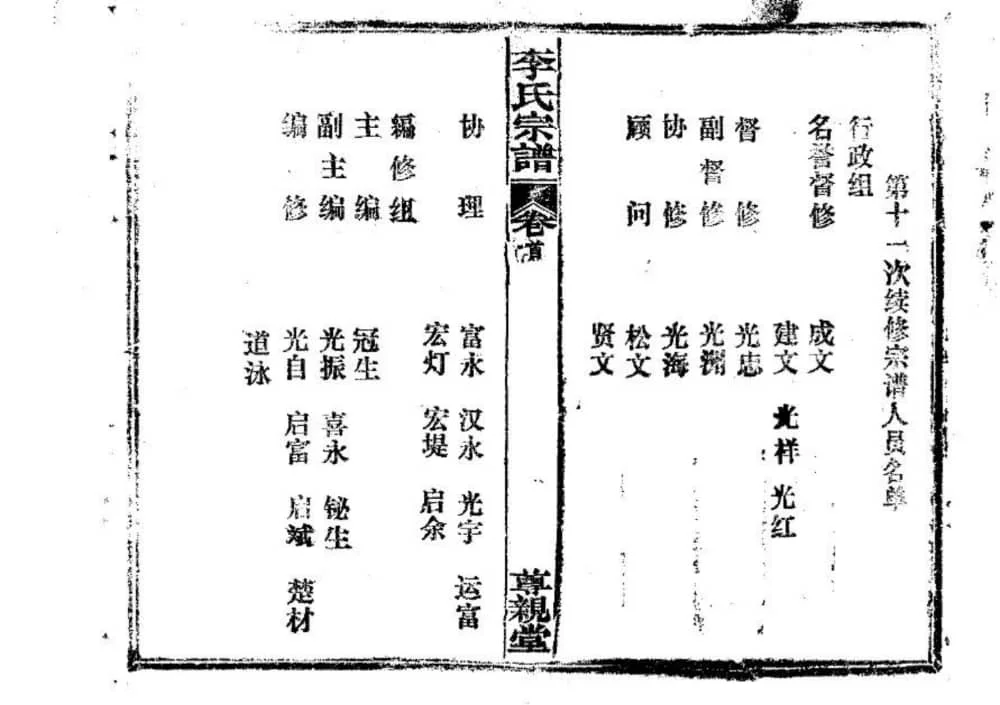 第十一次续修宗谱人员名单
行政组
名誉督修 成文
建文 光样 光红
督修 光忠
副督修 光渊
协修 光海
顾问 松文
贤文
李氏宗譜
卷首
尊親堂
协理 富永 汉永 光宇 运富
宏灯 宏堤 启余
编修组
主编 冠生
副主编 光振 喜永 铋生
编修 光自 启富 启斌 楚材
道泳